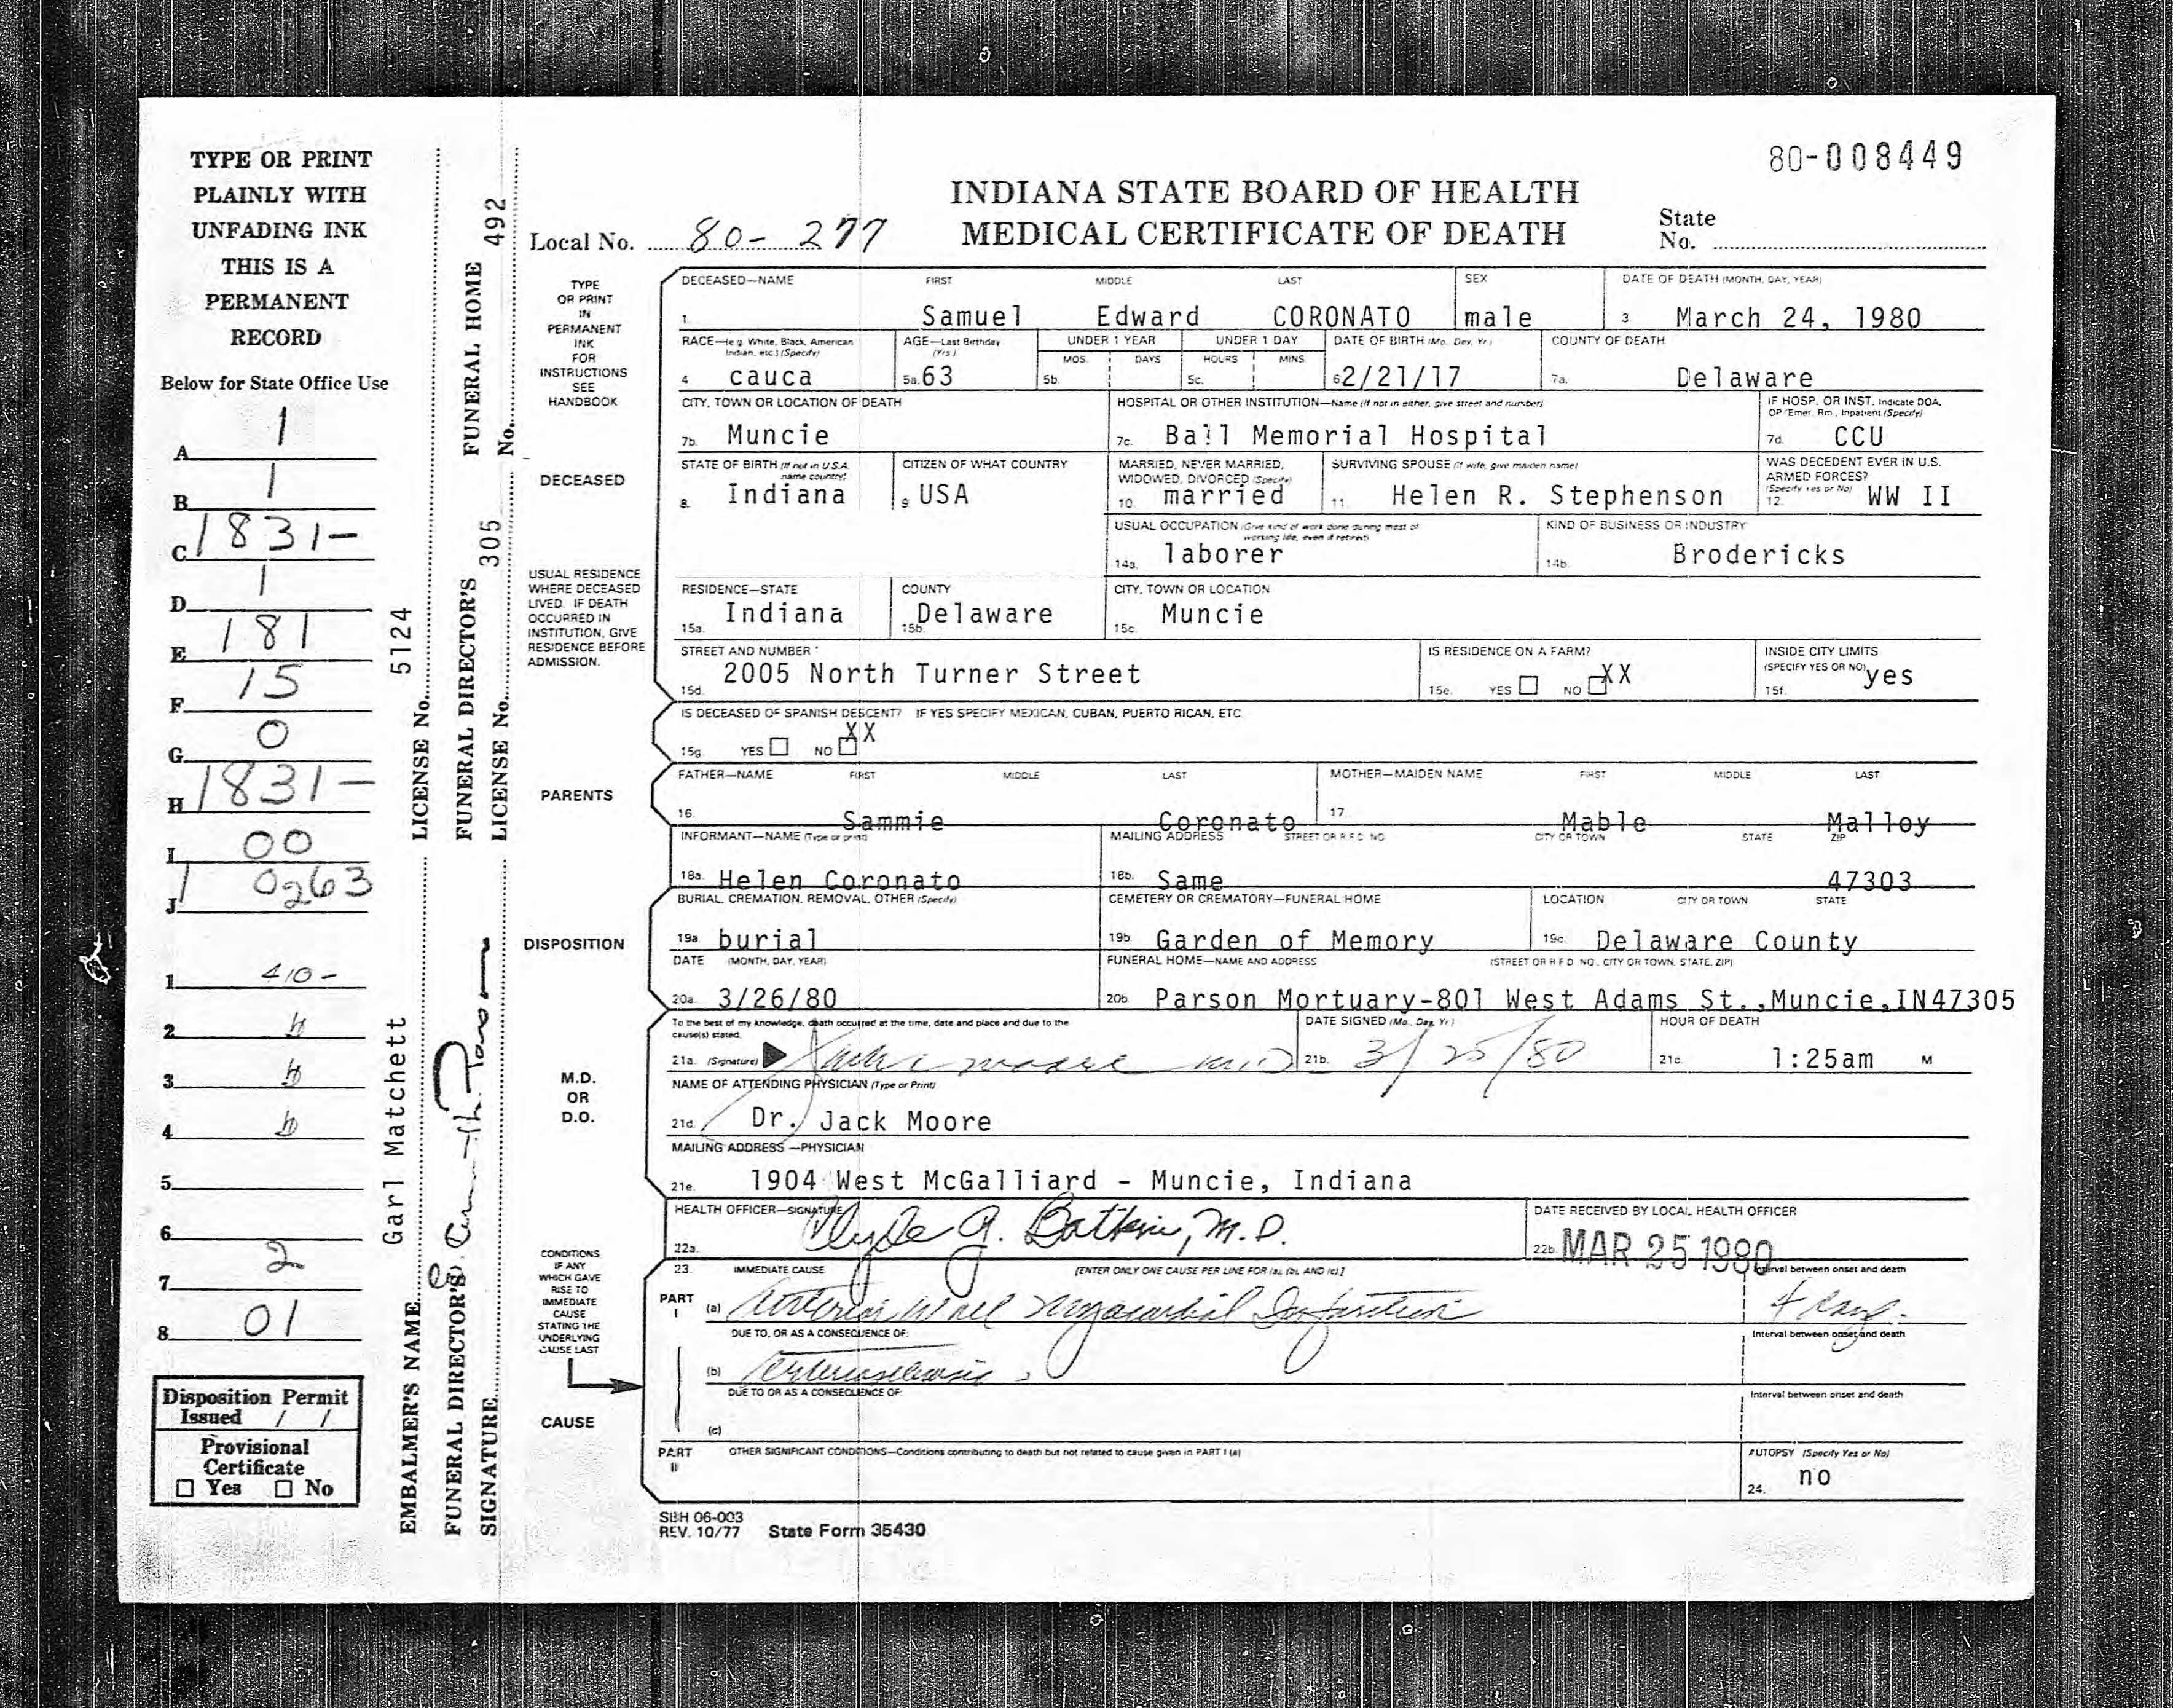 80-008449
INDIANA STATE BOARD OF HEALTH
MEDICAL CERTIFICATE OF DEATH
Local No. 80-277
State No.
TYPE OR PRINT
PLAINLY WITH
UNFADING INK
THIS IS A
PERMANENT
RECORD
Below for State Office Use
A 1
B 1
C 1831-
D 1
E 181
F 15
G 0
H 1831-
I 00
J 0263
1 410-
2
3
4
5
6
7 2
8 01
Disposition Permit
Issued / /
Provisional
Certificate
☐ Yes ☐ No
EMBALMER'S NAME Garl Matchett LICENSE No. 5124
FUNERAL DIRECTOR'S SIGNATURE
FUNERAL DIRECTOR'S LICENSE No. 305
FUNERAL HOME No. 492
TYPE
OR PRINT
IN
PERMANENT
INK
FOR
INSTRUCTIONS
SEE
HANDBOOK
DECEASED—NAME FIRST MIDDLE LAST SEX DATE OF DEATH (MONTH, DAY, YEAR)
1. Samuel Edward CORONATO male 3 March 24, 1980
RACE—(e.g. White, Black, American Indian, etc.) (Specify) AGE—Last Birthday (Yrs.) UNDER 1 YEAR UNDER 1 DAY DATE OF BIRTH (Mo. Day, Yr.) COUNTY OF DEATH
MOS. DAYS HOURS MINS
4 cauca 5a. 63 5b. 5c. 6 2/21/17 7a. Delaware
CITY, TOWN OR LOCATION OF DEATH HOSPITAL OR OTHER INSTITUTION—Name (If not in either, give street and number) IF HOSP. OR INST. Indicate DOA, OP/Emer. Rm., Inpatient (Specify)
7b. Muncie 7c. Ball Memorial Hospital 7d. CCU
DECEASED
STATE OF BIRTH (If not in U.S.A. name country) CITIZEN OF WHAT COUNTRY MARRIED, NEVER MARRIED, WIDOWED, DIVORCED (Specify) SURVIVING SPOUSE (If wife, give maiden name) WAS DECEDENT EVER IN U.S. ARMED FORCES? (Specify Yes or No)
8. Indiana 9 USA 10. married 11. Helen R. Stephenson 12. WW II
USUAL OCCUPATION (Give kind of work done during most of working life, even if retired) KIND OF BUSINESS OR INDUSTRY
14a. laborer 14b. Brodericks
USUAL RESIDENCE
WHERE DECEASED
LIVED. IF DEATH
OCCURRED IN
INSTITUTION, GIVE
RESIDENCE BEFORE
ADMISSION.
RESIDENCE—STATE COUNTY CITY, TOWN OR LOCATION
15a. Indiana 15b. Delaware 15c. Muncie
STREET AND NUMBER IS RESIDENCE ON A FARM? INSIDE CITY LIMITS (SPECIFY YES OR NO)
15d. 2005 North Turner Street 15e. YES ☐ NO ☐ XX 15f. yes
IS DECEASED OF SPANISH DESCENT? IF YES SPECIFY MEXICAN, CUBAN, PUERTO RICAN, ETC.
15g. YES ☐ NO ☐ XX
PARENTS
FATHER—NAME FIRST MIDDLE LAST MOTHER—MAIDEN NAME FIRST MIDDLE LAST
16. Sammie Coronato 17. Mable Malloy
INFORMANT—NAME (Type or print) MAILING ADDRESS STREET OR R.F.D. NO. CITY OR TOWN STATE ZIP
18a. Helen Coronato 18b. Same 47303
DISPOSITION
BURIAL, CREMATION, REMOVAL, OTHER (Specify) CEMETERY OR CREMATORY—FUNERAL HOME LOCATION CITY OR TOWN STATE
19a. burial 19b. Garden of Memory 19c. Delaware County
DATE (MONTH, DAY, YEAR) FUNERAL HOME—NAME AND ADDRESS (STREET OR R.F.D. NO., CITY OR TOWN, STATE, ZIP)
20a. 3/26/80 20b. Parson Mortuary-801 West Adams St.,Muncie,IN47305
M.D.
OR
D.O.
To the best of my knowledge, death occurred at the time, date and place and due to the cause(s) stated. DATE SIGNED (Mo., Day, Yr.) HOUR OF DEATH
21a. (Signature) Jack Moore MD 21b. 3/25/80 21c. 1:25am M
NAME OF ATTENDING PHYSICIAN (Type or Print)
21d. Dr. Jack Moore
MAILING ADDRESS—PHYSICIAN
21e. 1904 West McGalliard - Muncie, Indiana
HEALTH OFFICER—SIGNATURE DATE RECEIVED BY LOCAL HEALTH OFFICER
22a. Clyde G. Botkin, M.D. 22b. MAR 25 1980
CONDITIONS
IF ANY
WHICH GAVE
RISE TO
IMMEDIATE
CAUSE
STATING THE
UNDERLYING
CAUSE LAST
CAUSE
23. IMMEDIATE CAUSE [ENTER ONLY ONE CAUSE PER LINE FOR (a), (b), AND (c)] Interval between onset and death
PART I (a) Anterior Wall Myocardial Infarction 4 days.
DUE TO, OR AS A CONSEQUENCE OF: Interval between onset and death
(b) Arteriosclerosis
DUE TO OR AS A CONSEQUENCE OF: Interval between onset and death
(c)
PART II OTHER SIGNIFICANT CONDITIONS—Conditions contributing to death but not related to cause given in PART I (a) AUTOPSY (Specify Yes or No)
24. no
SBH 06-003
REV. 10/77 State Form 35430